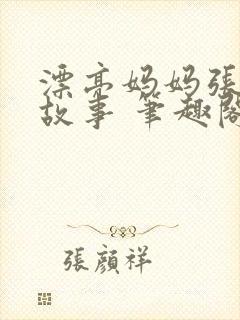 漂亮妈妈张
故事 筆趣閣
張顏祥